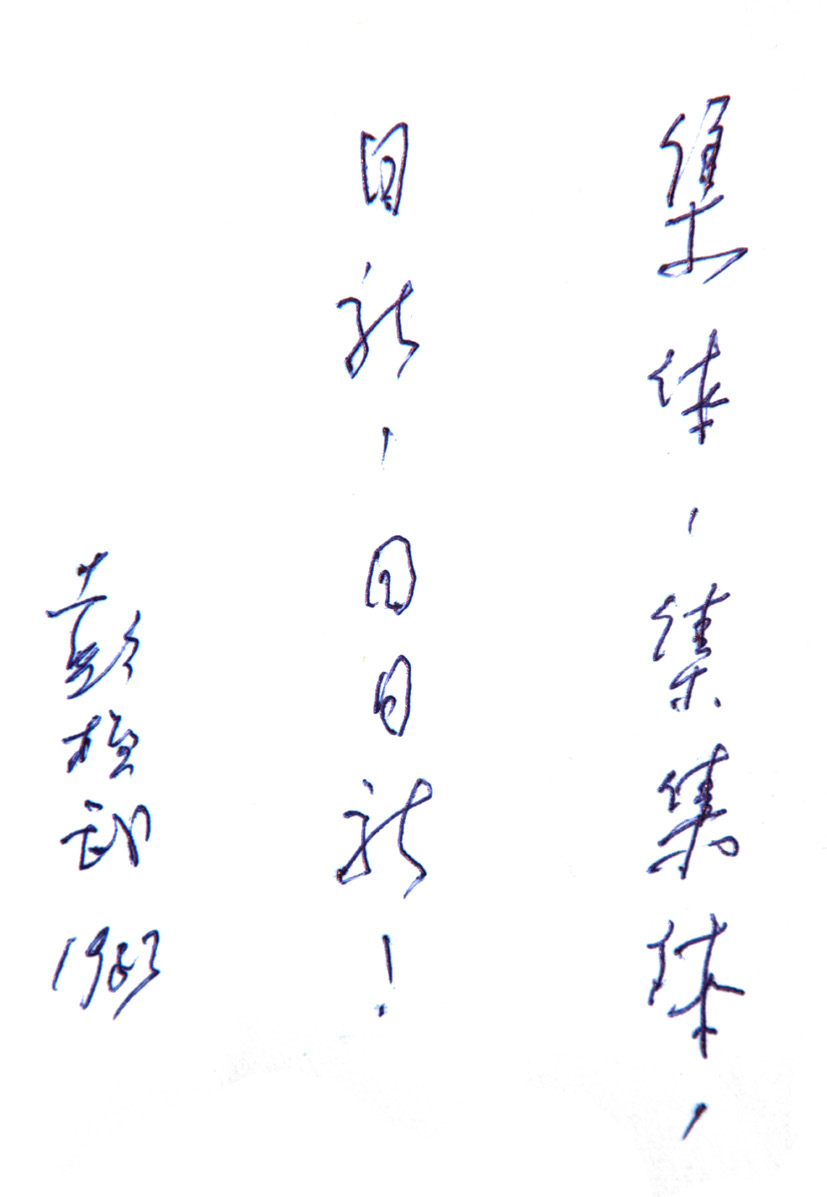 集体，集集体，
日新，日日新！
彭桓武